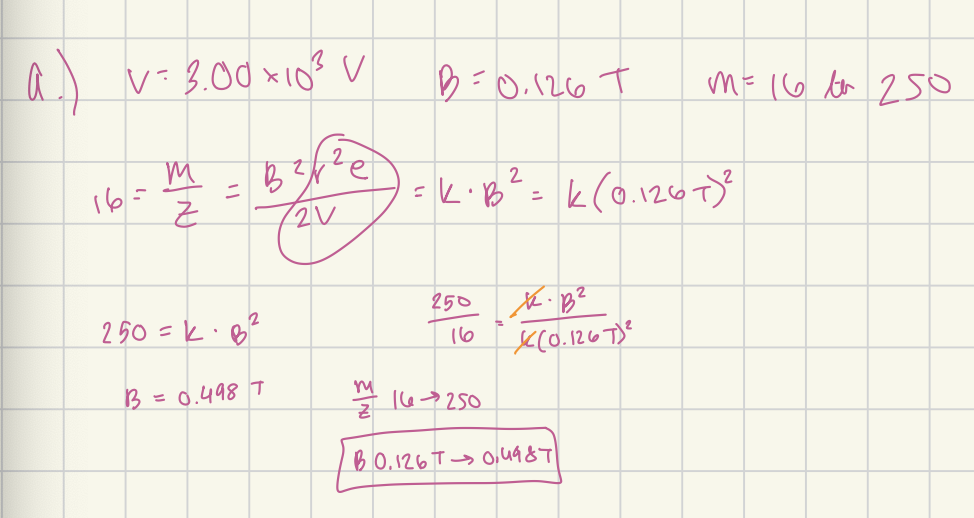 a.) V = 3.00 × 10³ V B = 0.126 T m = 16 to 250
16 = m/z = B²r²e/2V = k · B² = k(0.126 T)²
250 = k · B² 250/16 = k · B²/k(0.126 T)²
B = 0.498 T m/z 16 → 250
B 0.126 T → 0.498 T